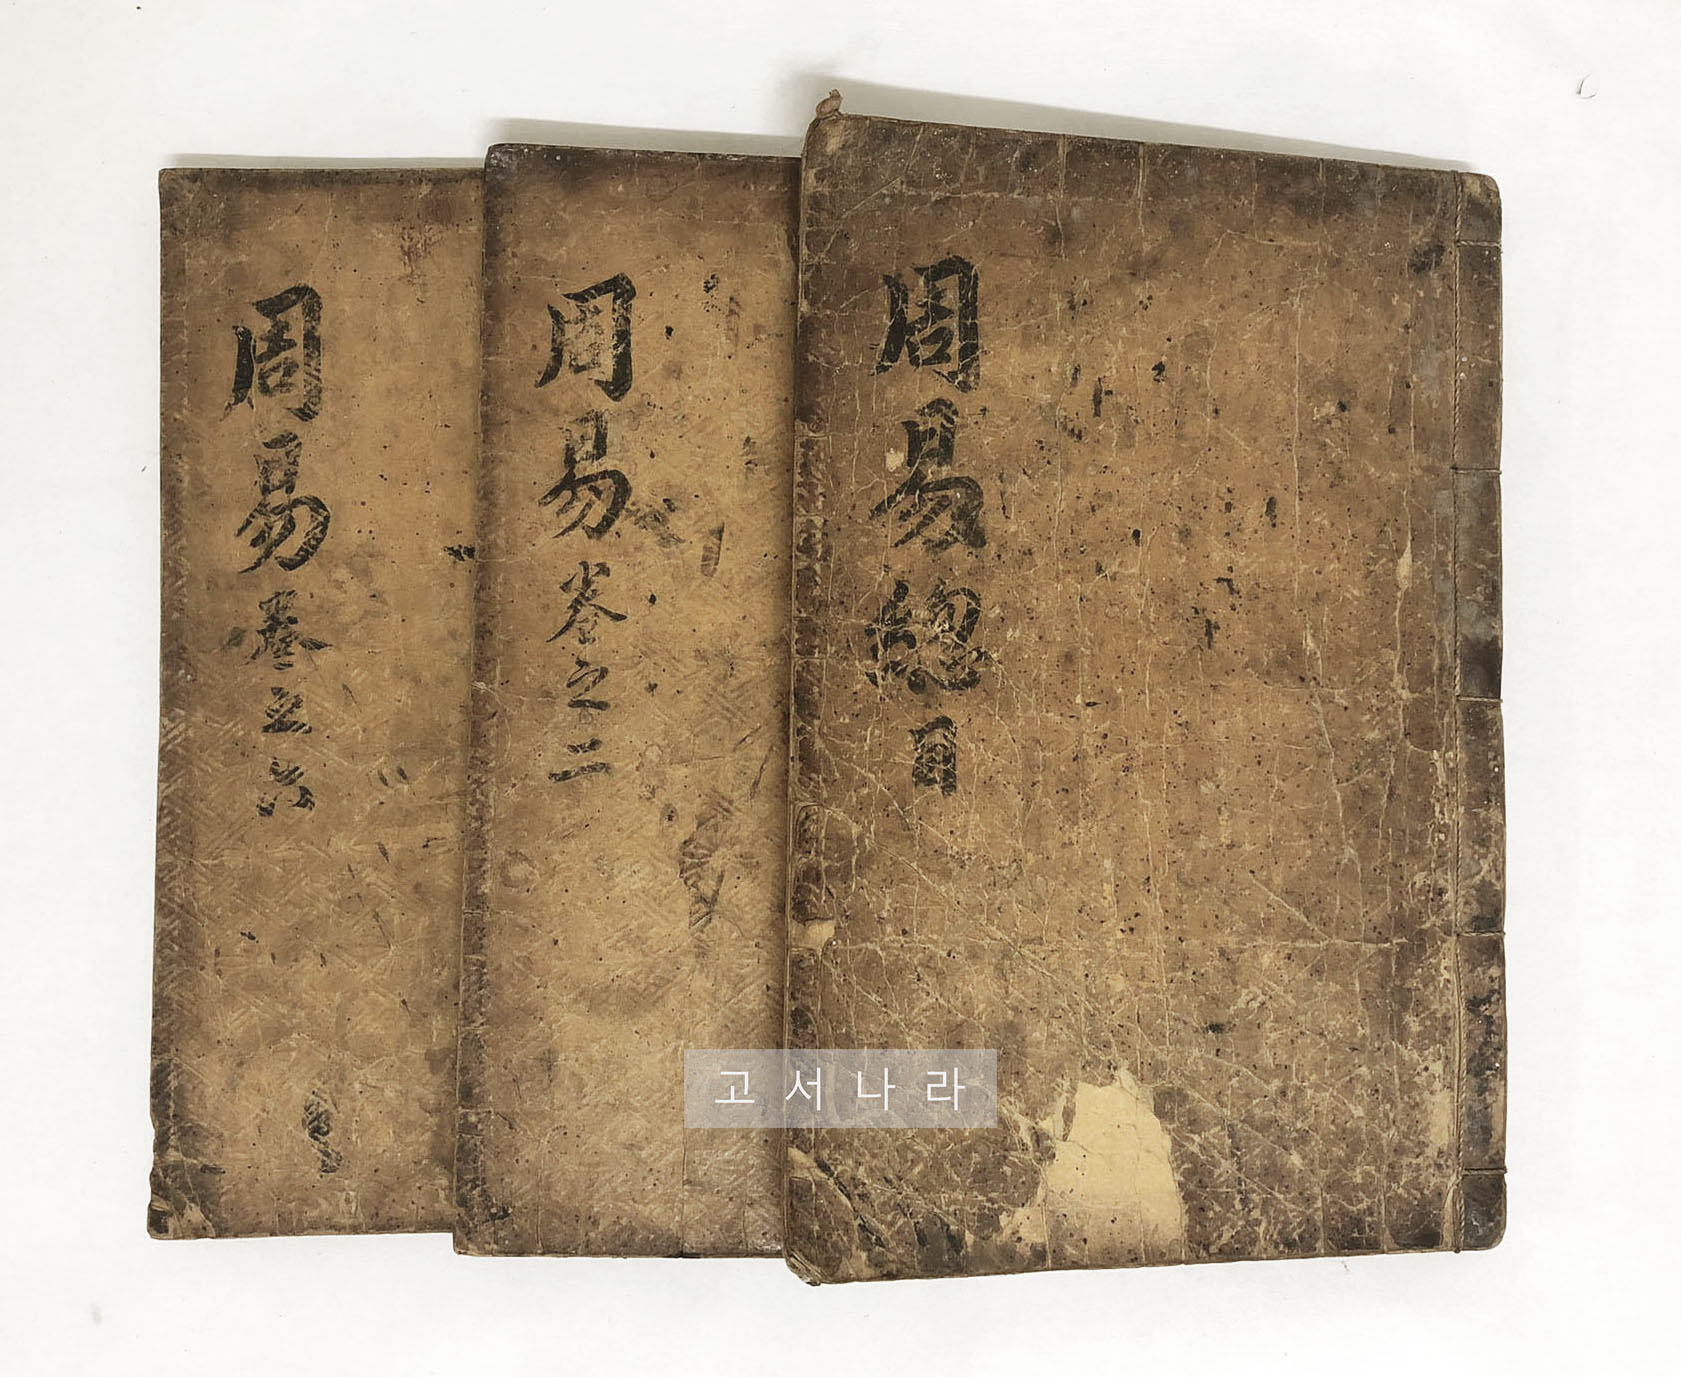 周易總目
周易卷之二
周易卷之六
고서나라